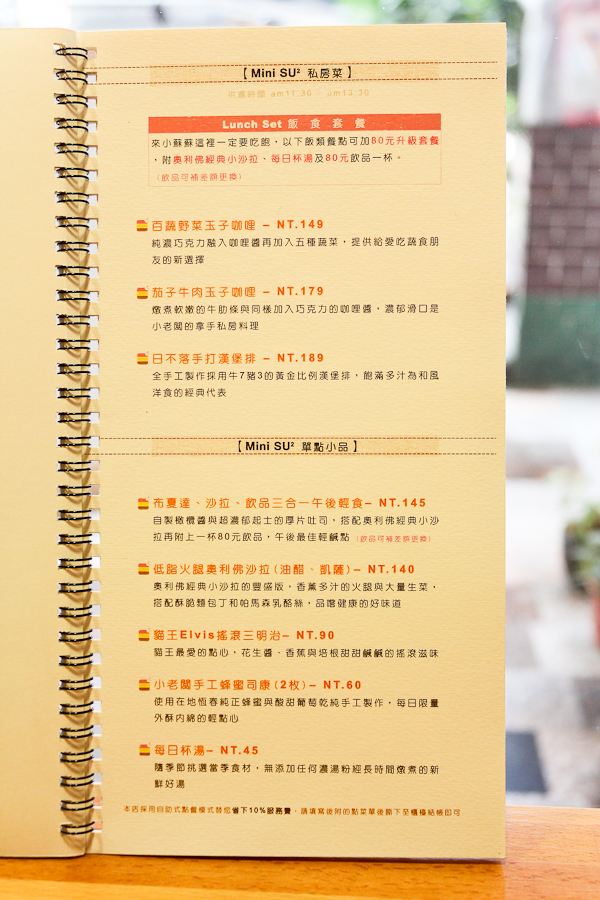 【Mini SU² 私房菜】
供應時間 am11:30 - pm13:30
Lunch Set 飯 食 套 餐
來小蘇蘇這裡一定要吃飽，以下飯類餐點可加80元升級套餐
，附奧利佛經典小沙拉、每日杯湯及80元飲品一杯。
（飲品可補差額更換）
百蔬野菜玉子咖哩 – NT.149
純濃巧克力融入咖哩醬再加入五種蔬菜，提供給愛吃蔬食朋
友的新選擇
茄子牛肉玉子咖哩 – NT.179
燉煮軟嫩的牛肋條與同樣加入巧克力的咖哩醬，濃郁滑口是
小老闆的拿手私房料理
日不落手打漢堡排 – NT.189
全手工製作採用牛7豬3的黃金比例漢堡排，飽滿多汁為和風
洋食的經典代表
【Mini SU² 單點小品】
布夏達、沙拉、飲品三合一午後輕食– NT.145
自製橄欖醬與超濃郁起士的厚片吐司，搭配奧利佛經典小沙
拉再附上一杯80元飲品，午後最佳輕鹹點（飲品可補差額更換）
低脂火腿奧利佛沙拉(油醋、凱薩)– NT.140
奧利佛經典小沙拉的豐盛版，香薰多汁的火腿與大量生菜，
搭配酥脆麵包丁和帕馬森乳酪絲，品嚐健康的好味道
貓王Elvis搖滾三明治– NT.90
貓王最愛的點心，花生醬、香蕉與培根甜甜鹹鹹的搖滾滋味
小老闆手工蜂蜜司康(2枚)– NT.60
使用在地恆春純正蜂蜜與酸甜葡萄乾純手工製作，每日限量
外酥內綿的輕點心
每日杯湯– NT.45
隨季節挑選當季食材，無添加任何濃湯粉經長時間燉煮的新
鮮好湯
本店採用自助式點餐模式替您省下10%服務費，請填寫後附的點菜單後撕下至櫃檯結帳即可